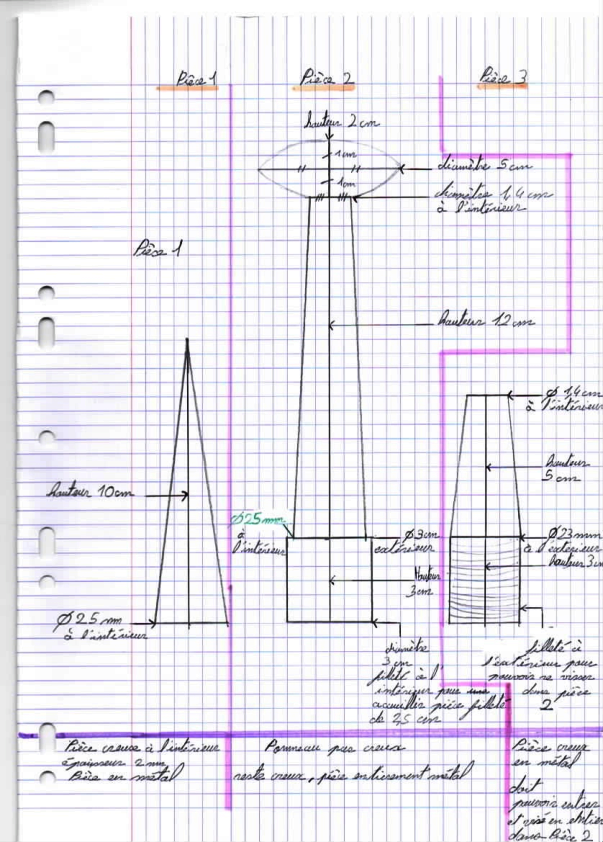 Pièce 1
Pièce 2
Pièce 3
hauteur 2 cm
1cm
1cm
diamètre 5 cm
diamètre 1,4 cm
à l'intérieur
Pièce 1
hauteur 12 cm
Ø 1,4 cm
à l'intérieur
hauteur
5 cm
hauteur 10cm
Ø25mm
à
l'intérieur
Ø3cm
extérieur
Ø23mm
à l'exterieur
hauteur 3c
Hauteur
3cm
Ø 25 mm
à l'intérieur
diamètre
3 cm
fileté à l'
intérieur pour
accuillir pièce fileté
de 2,5 cm
fileté à
l'extérieur pour
pouvoir se visser
dans pièce
2
Pièce creuse à l'intérieur
épaisseur 2 mm
Pièce en métal
Pommeau pas creux
reste creux, pièce entièrement métal
Pièce creux
en métal
doit
pouvoir entrer
et visé en entier
dans Pièce 2